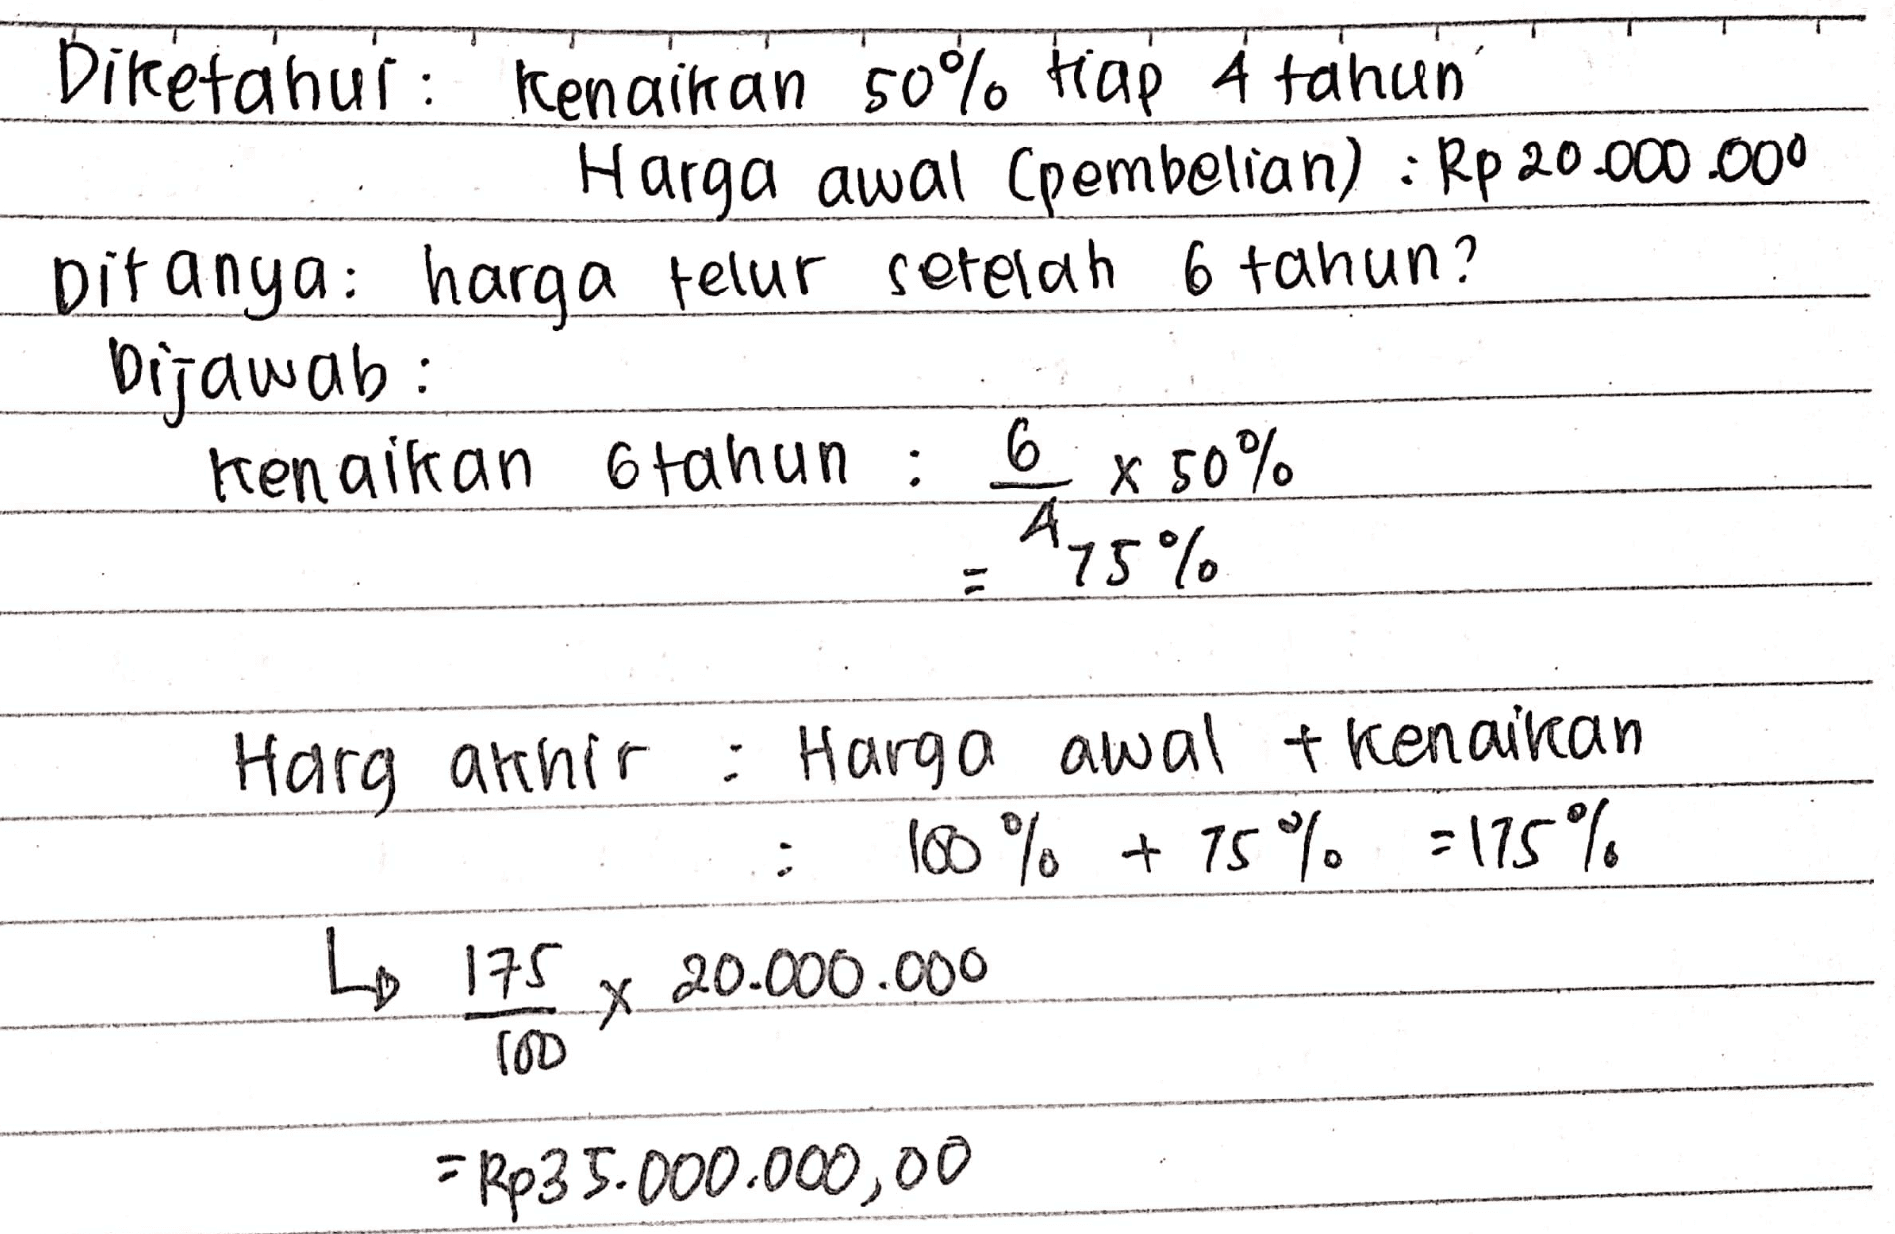 Diketahui : Kenaikan 50% tiap 4 tahun
Harga awal (pembelian) : Rp 20.000.000
Ditanya : harga telur setelah 6 tahun?
Dijawab :
Kenaikan 6 tahun : 6/4 x 50%
= 75%
Harg akhir : Harga awal + kenaikan
: 100% + 75% = 175%
↳ 175/100 x 20.000.000
= Rp35.000.000,00